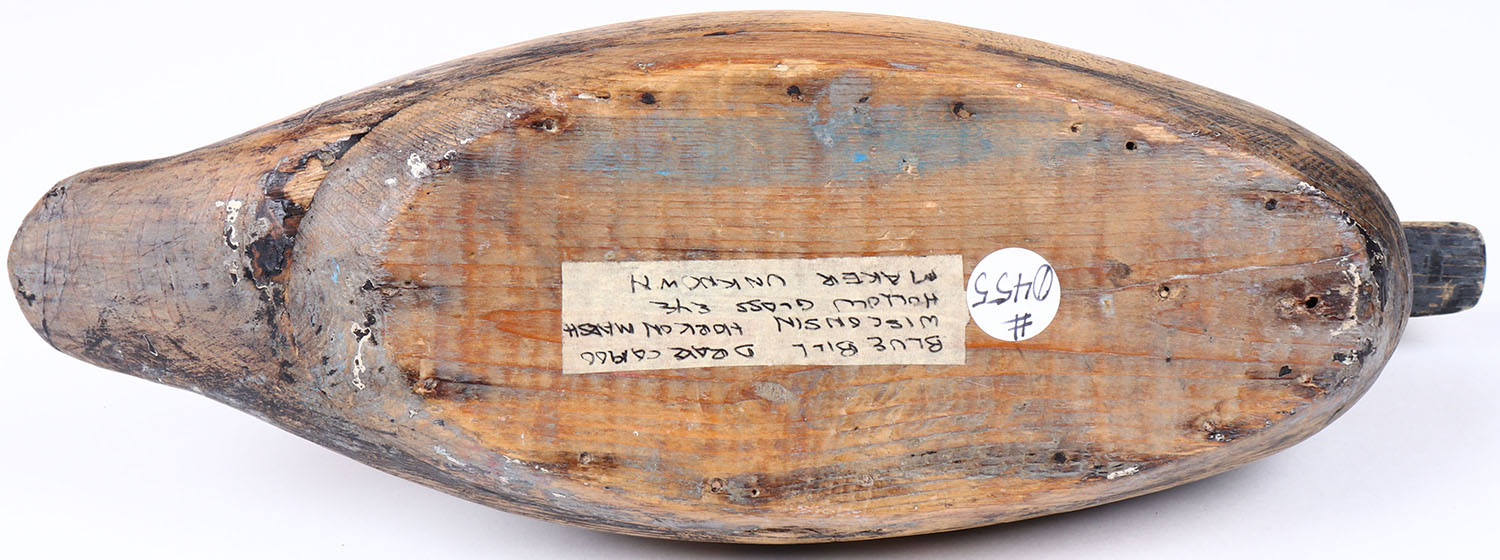 BLUE BILL DRAKE CA1900
WISCONSIN HORICON MARSH
HOLLOW GLASS EYE
MAKER UNKNOWN
#
0455